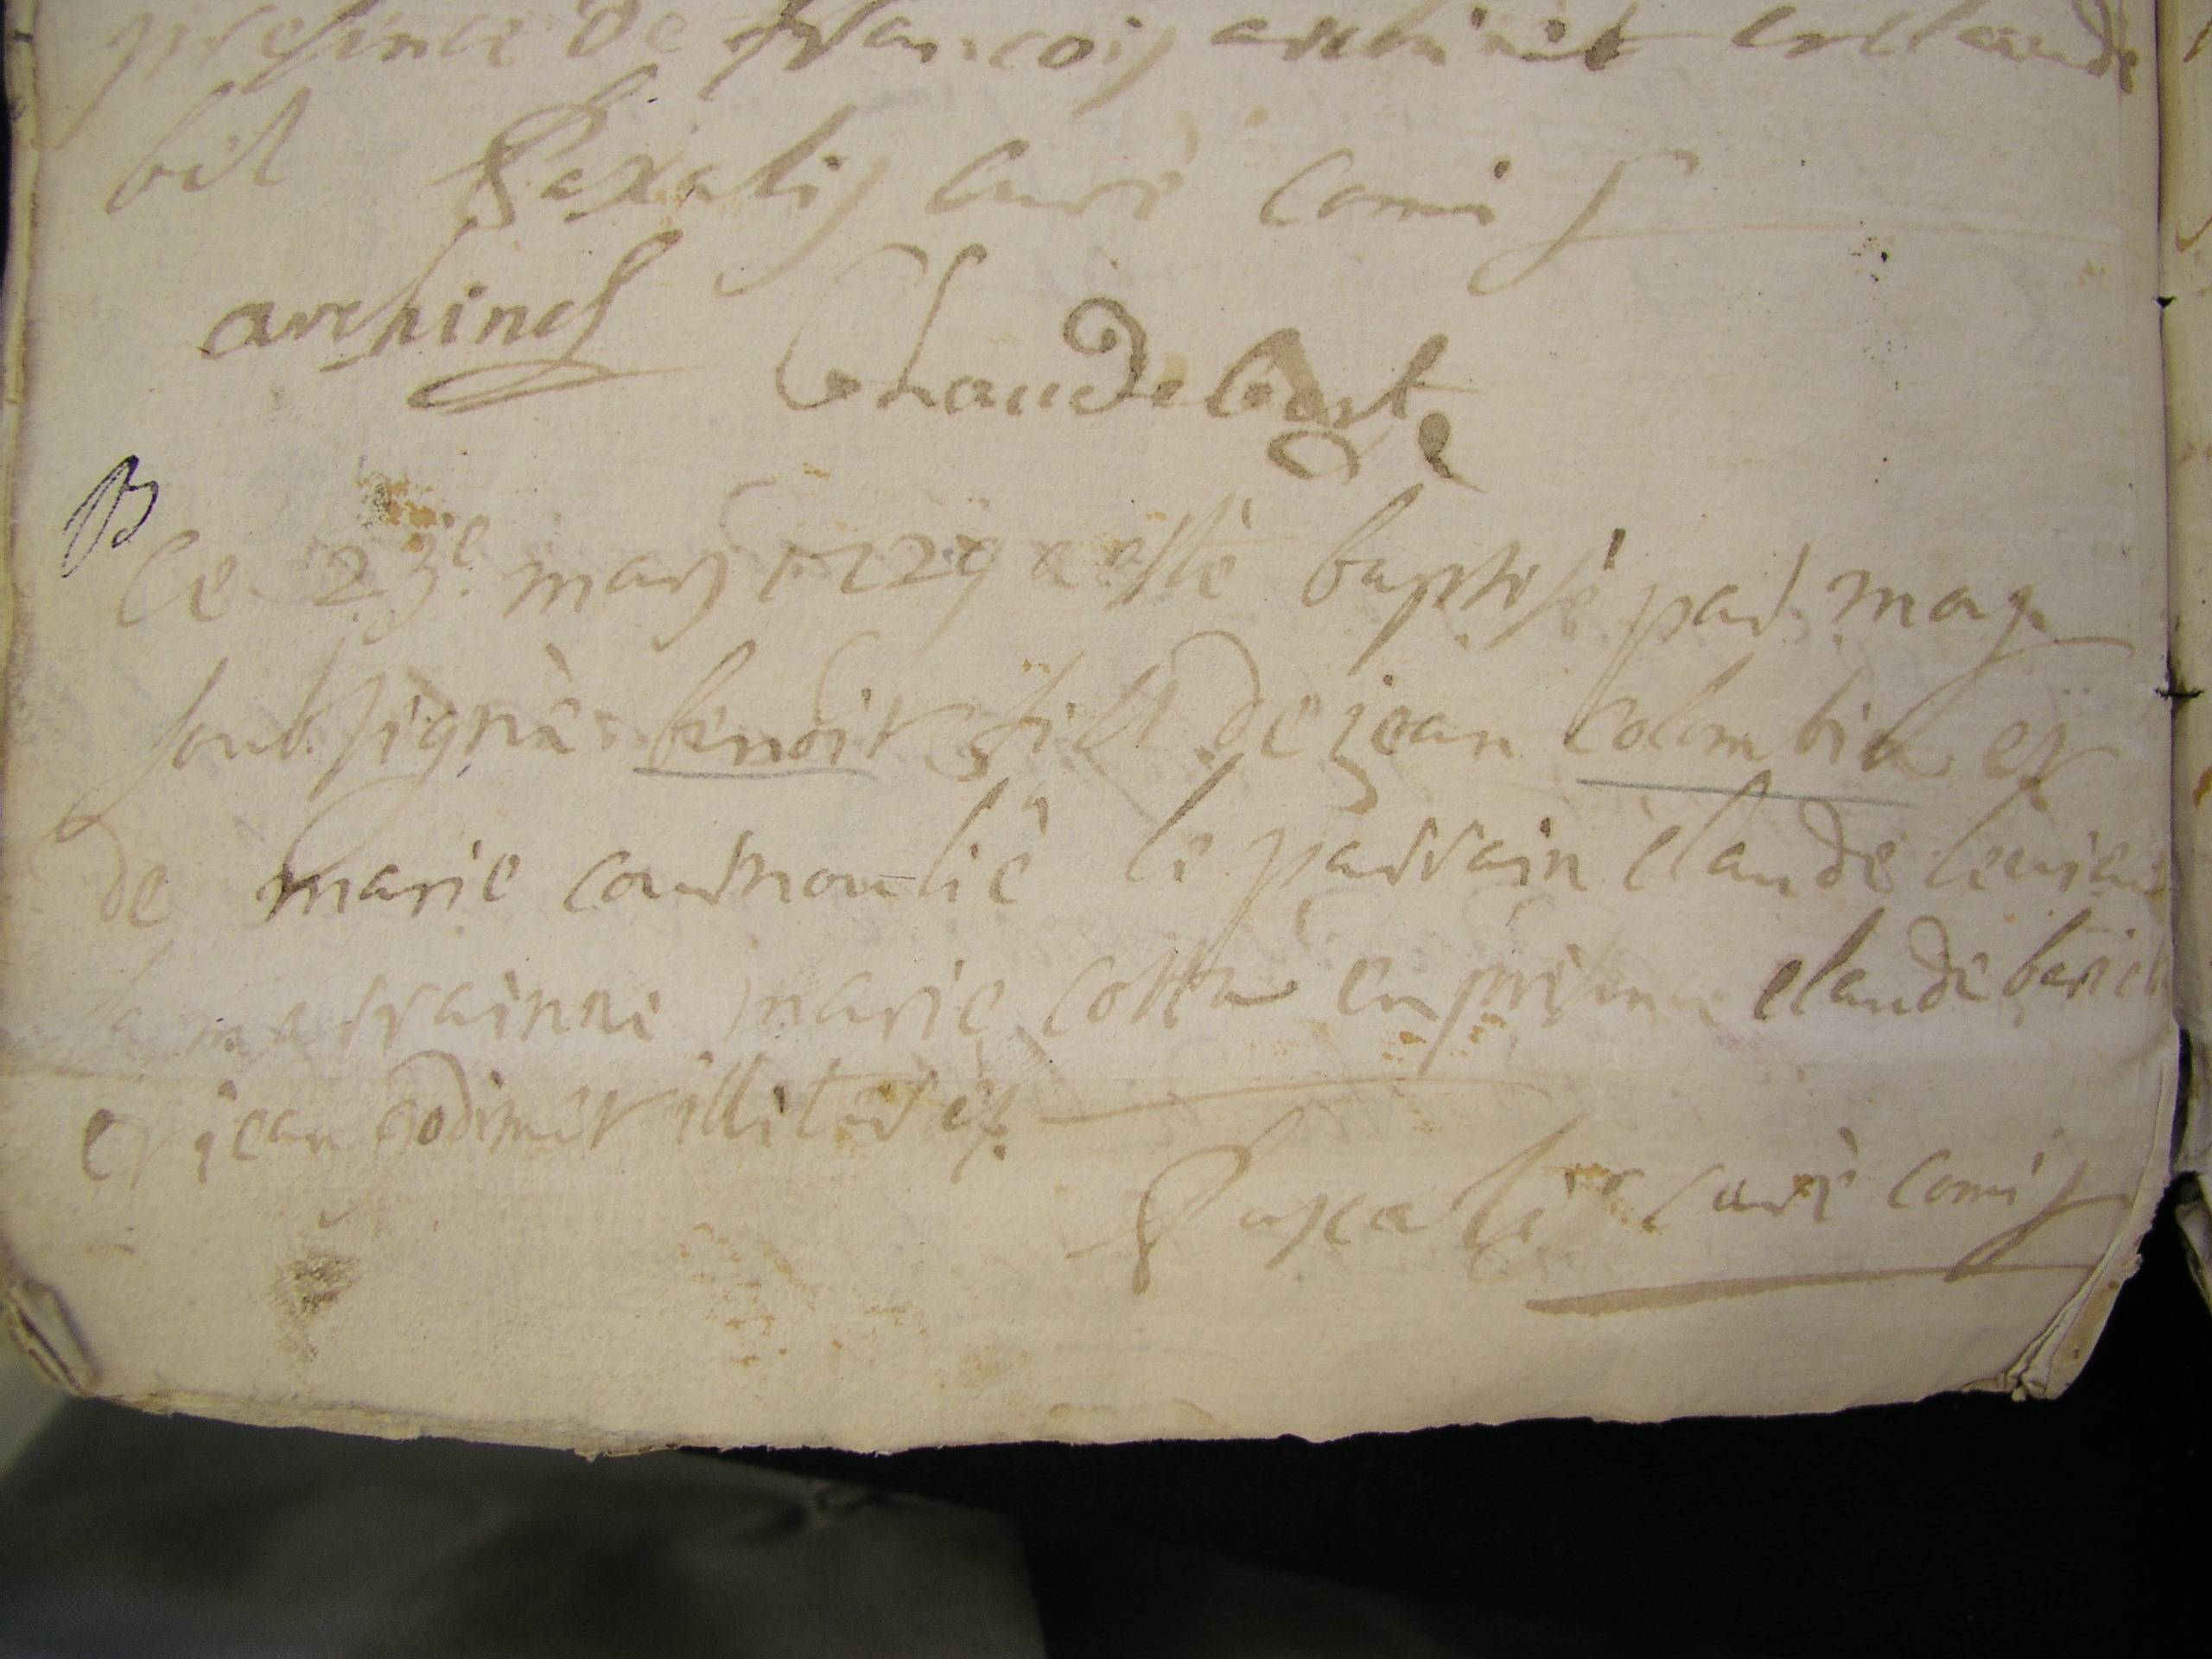 presence de francois archinet et claude
bét Paxalis curé comis
archinet Claude bét
B
le 23e mars 1729 a esté baptisé par moy
soubsigné benoit fils de jean colombin et
de marie cournoulié le parrain claude
la marrainne marie cottin en presence claude
et jean godimet illiterez
Paxalis curé comis